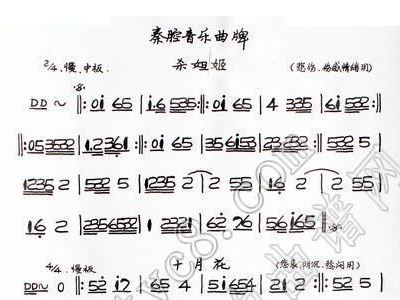 秦腔音乐曲牌
2/4. 慢. 中板. 杀妲姬 (悲伤、伤感情绪用)
DD～ ‖: 0i 65 | i·6 535 :‖: 0i 65 | 4 335 | 6i 532 :‖
‖: 053532 | 1·2361 :‖: 0i 535 | 356i53 | 235 :‖: 532 5 |
1235 2 | 532 5 | 1235 2 | 2 55 | 16 2 | 2 55 | 532 5 |
16 2 | 2356532 | 1 2221 | 62 26 | 56i65 :‖
4/4. 慢板 十月花 (悲哀、阴沉、愁闷用)
DD～ 0 ‖: 52 i2 | 65 4 | 54 2 | 5i654 | 52 5 |